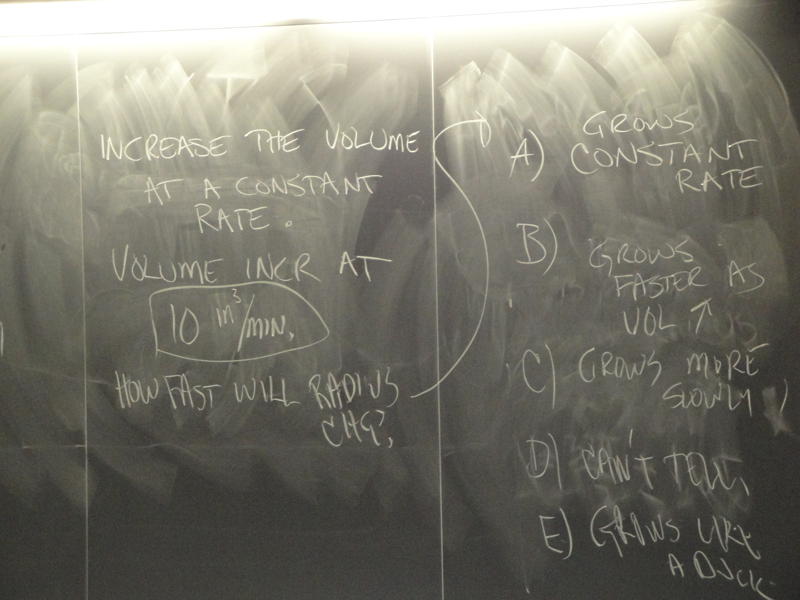 INCREASE THE VOLUME
AT A CONSTANT
RATE.
VOLUME INCR AT
10 in³/MIN.
HOW FAST WILL RADIUS
CHG?
A) GROWS
CONSTANT
RATE
B) GROWS
FASTER AS
VOL ↑
C) GROWS MORE
SLOWLY
D) CAN'T TELL,
E) GROWS LIKE
A DUCK.